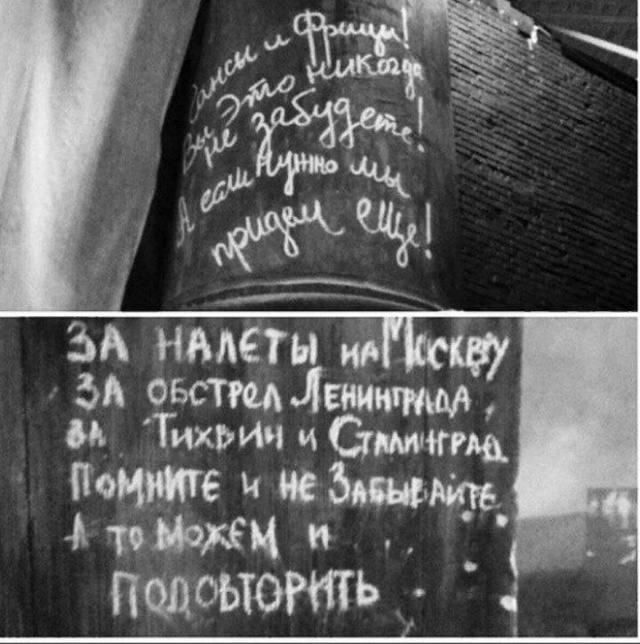 Гансы и Фрицы!
Вы Это никогда
не забудете!
А если нужно мы
придем еще!
ЗА НАЛЕТЫ НА МОСКВУ
ЗА ОБСТРЕЛ ЛЕНИНГРАДА,
ЗА ТИХВИН И СТАЛИНГРАД
ПОМНИТЕ И НЕ ЗАБЫВАЙТЕ
А ТО МОЖЕМ И
ПОДОВТОРИТЬ